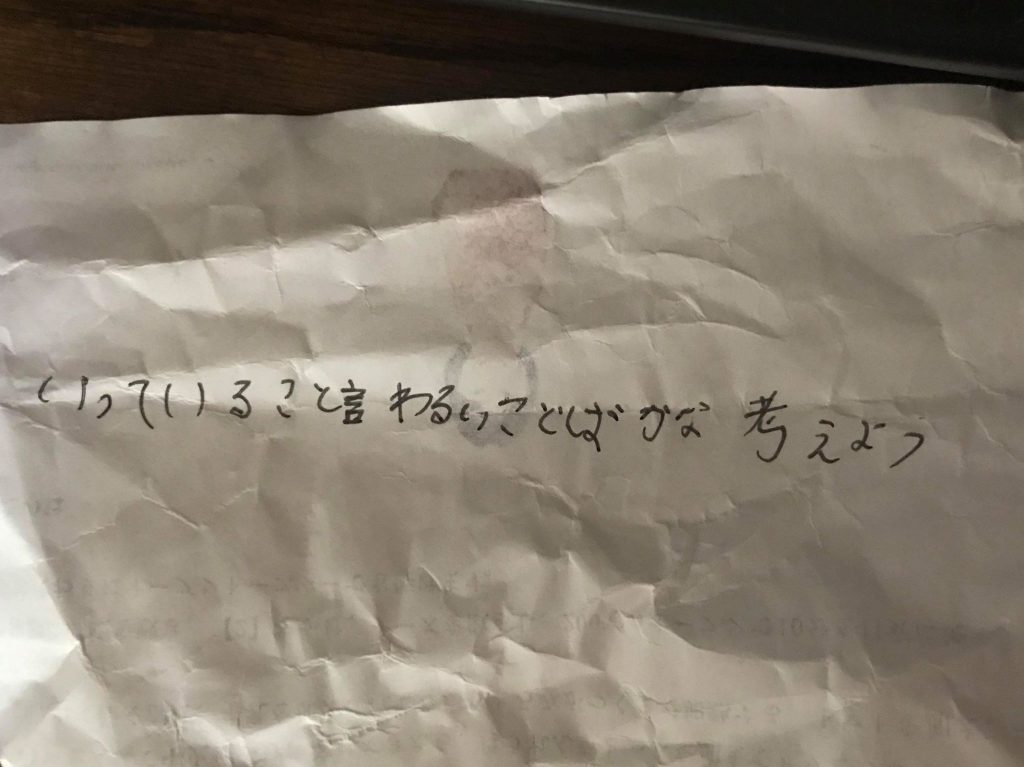 いっていること言わるいことばかな 考えよう